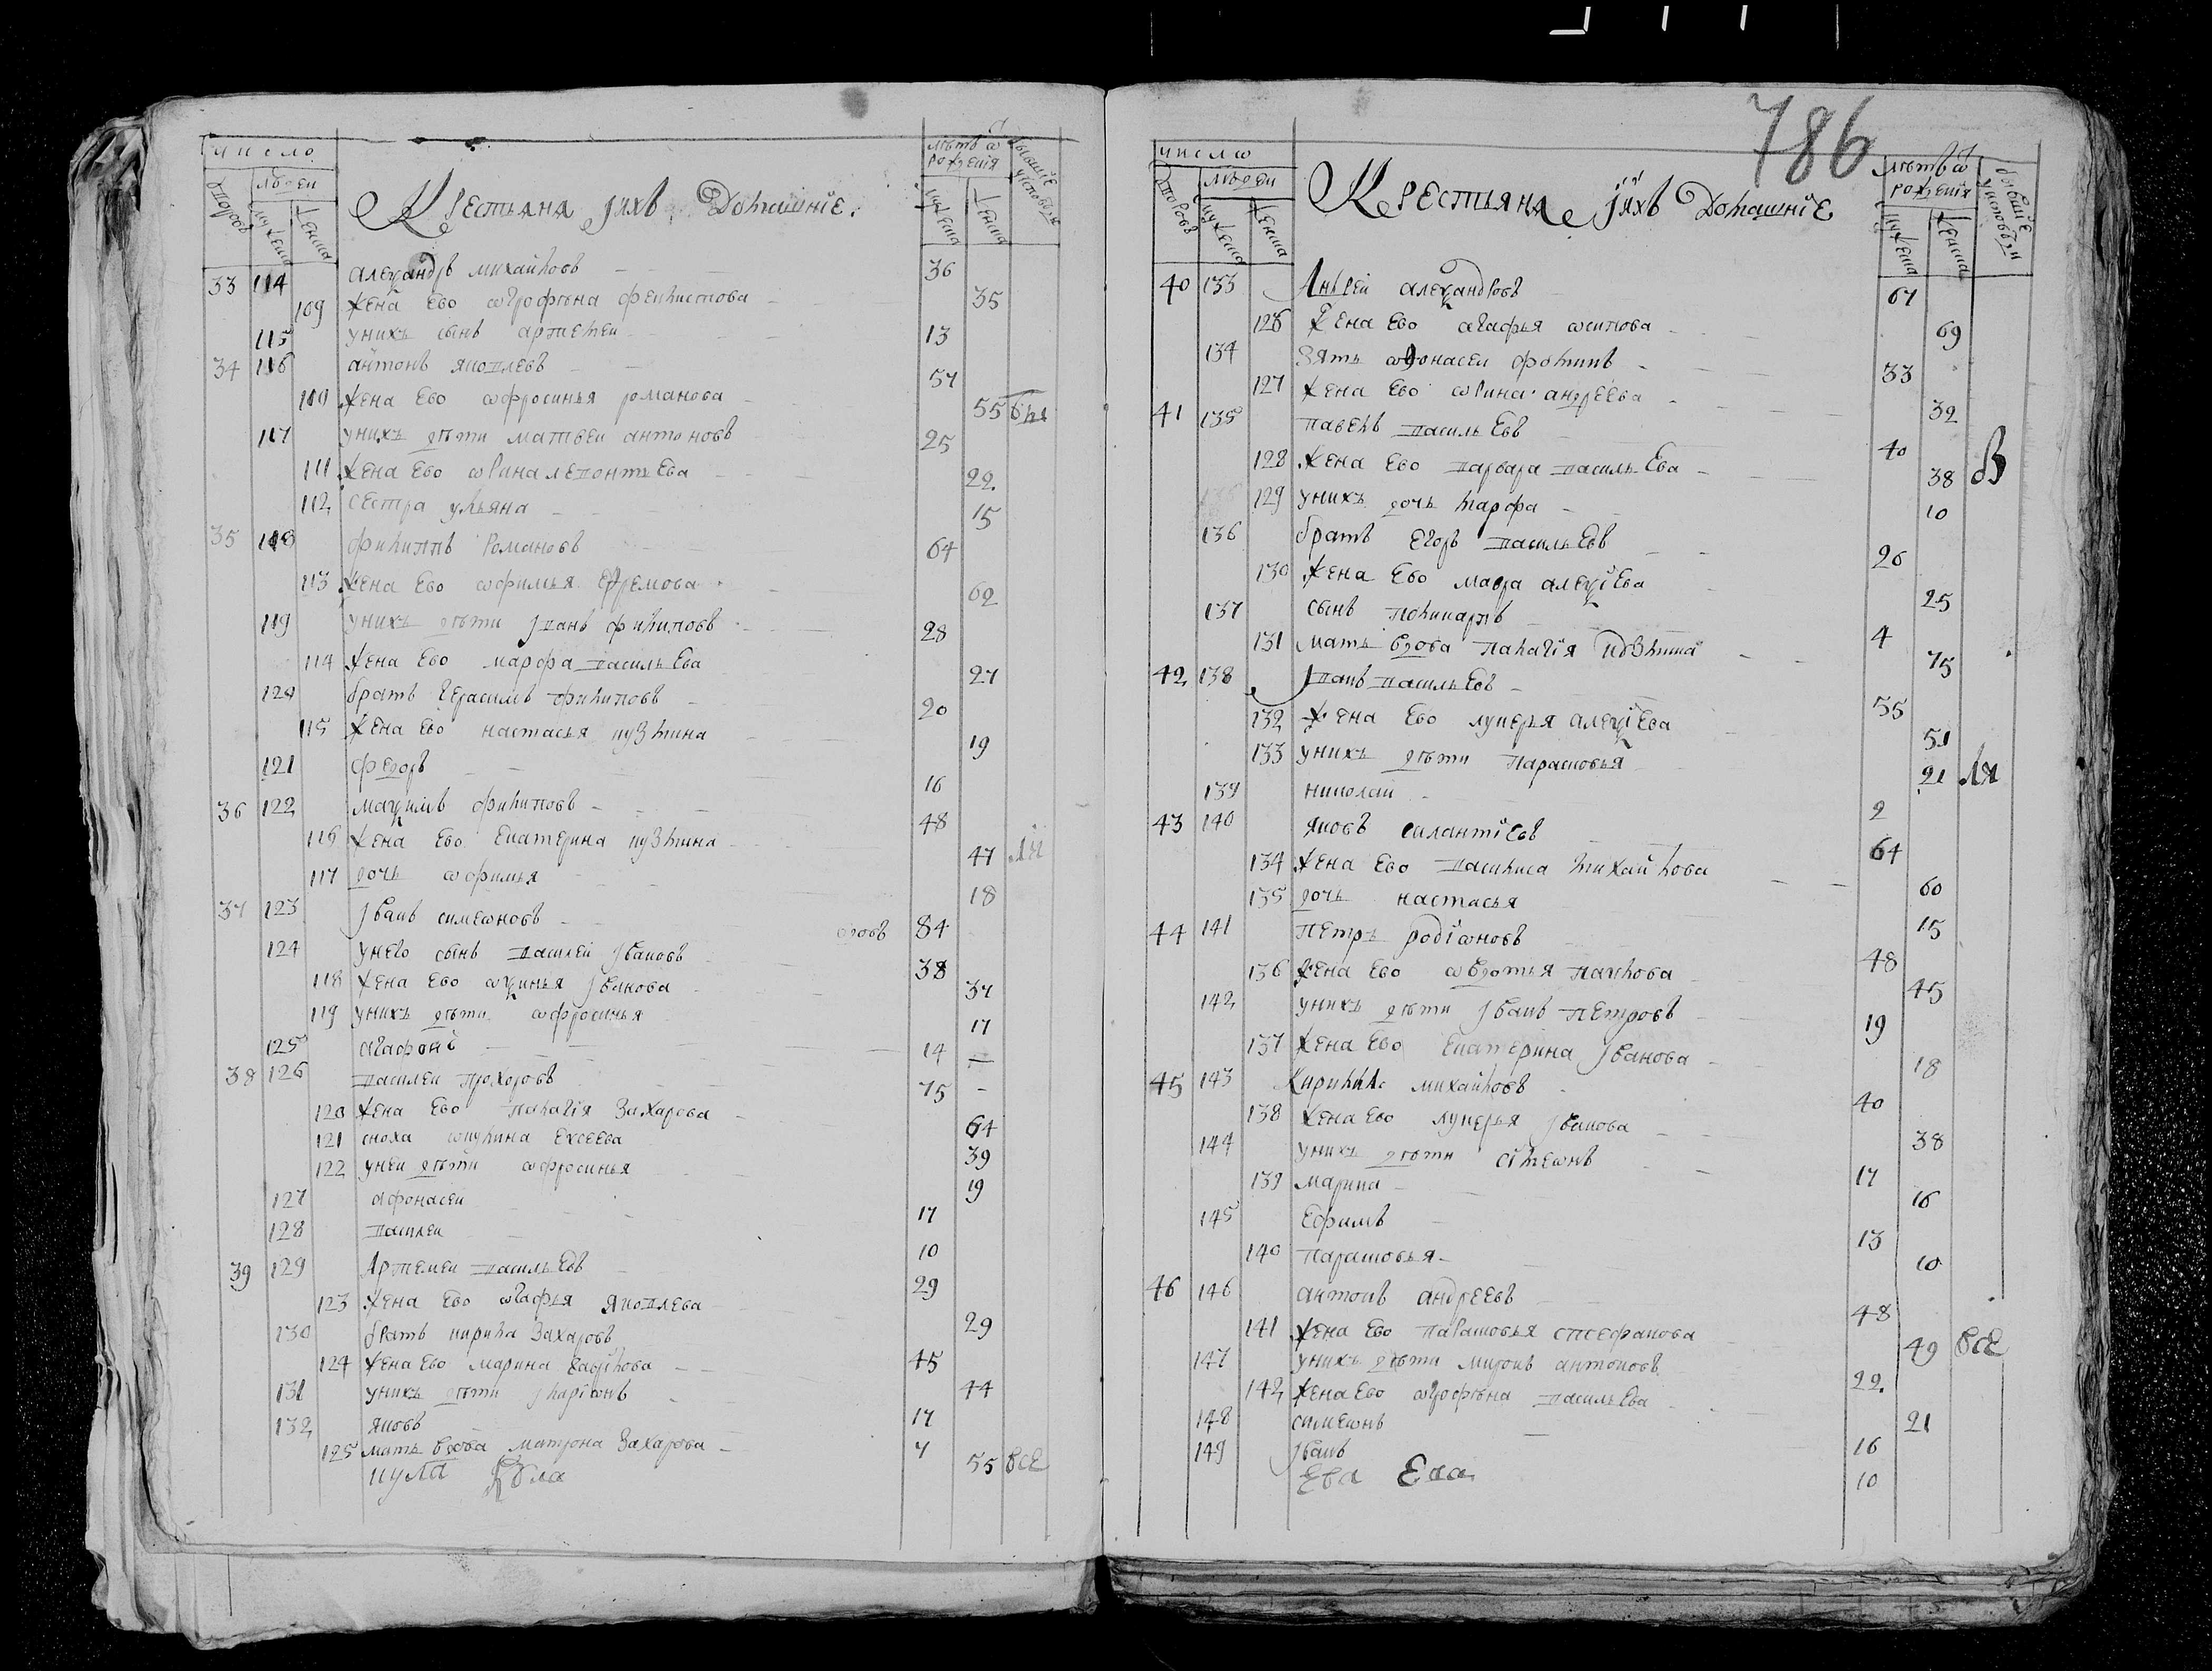 число
людеи
дворовъ
мужеска
женска
Крестьяна ихъ домашние.
лѣтъ ѿ рождения
мужеска
женска
бывшие у исповеди
33 114 алеѯандръ михайловъ 36
109 жена ево агрофѣна феклистова 35
115 у нихъ сынъ артемеи 13
34 116 антонъ яковлевъ 57
110 жена ево ѡфросинья романова 55
117 у нихъ дѣти матвеи антоновъ 25
111 жена ево ѡрина леонтьева 22
112 сестра ульяна 15
35 118 филиппъ романовъ 64
113 жена ево ѡфимья ефремова 62
119 у нихъ дѣти иванъ филиповъ 28
114 жена ево марфа васильева 27
120 братъ герасимъ филиповъ 20
115 жена ево настасья кузмина 19
121 федоръ 16
36 122 маѯимъ филиповъ 48
116 жена ево екатерина кузмина 47
117 дочь ѡфимья 18
37 123 иванъ симеѡновъ вдовъ 84
124 у него сынъ василеи ивановъ 38
118 жена ево аѯинья иванова 37
119 у нихъ дѣти ѡфросинья 17
125 агафонъ 14
38 126 василеи прохоровъ 75
120 жена ево палагія захарова 64
121 сноха акулина ексеева 39
122 у неи дѣти ѡфросинья 19
127 афонасеи 17
128 василеи 10
39 129 артемеи васильевъ 29
123 жена ево агафья яковлева 29
130 братъ кирила захаровъ 45
124 жена ево марина гаврилова 44
131 у нихъ дѣти иларіѡнъ 17
132 яковъ 7
125 мать вдова матрона захарова 55 все
786
число
людеи
дворовъ
мужеска
женска
Крестьяна ихъ домашние
лѣтъ ѿ рождения
мужеска
женска
бывшие у исповеди
40 133 андреи алеѯандровъ 67
126 жена ево агафья ѡсипова 69
134 зять афонасеи фоминъ 33
127 жена ево ѡрина андреева 32
41 135 павелъ васильевъ 40
128 жена ево варвара васильева 38 В
129 у нихъ дочь марфа 10
136 братъ егоръ васильевъ 26
130 жена ево мавра алеѯіева 25
137 сынъ поликарпъ 4
131 мать вдова палагія кузмина 75
42 138 иванъ васильевъ 55
132 жена ево лукерья алеѯіева 51
133 у нихъ дѣти парасковья 21
139 николаи 2
43 140 яковъ силантіевъ 64
134 жена ево василиса михайлова 60
135 дочь настасья 15
44 141 петръ родіѡновъ 48
136 жена ево авдотья павлова 45
142 у нихъ дѣти иванъ петровъ 19
137 жена ево екатерина иванова 18
45 143 кирилла михайловъ 40
138 жена ево лукерья иванова 38
144 у нихъ дѣти симеѡнъ 17
139 марина 16
145 ефимъ 13
140 парасковья 10
46 146 антонъ андреевъ 48
141 жена ево парасковья стефанова 49 все
147 у нихъ дѣти миронъ антоновъ 22
142 жена ево агрофѣна васильева 21
148 симеѡнъ 16
149 иванъ 10